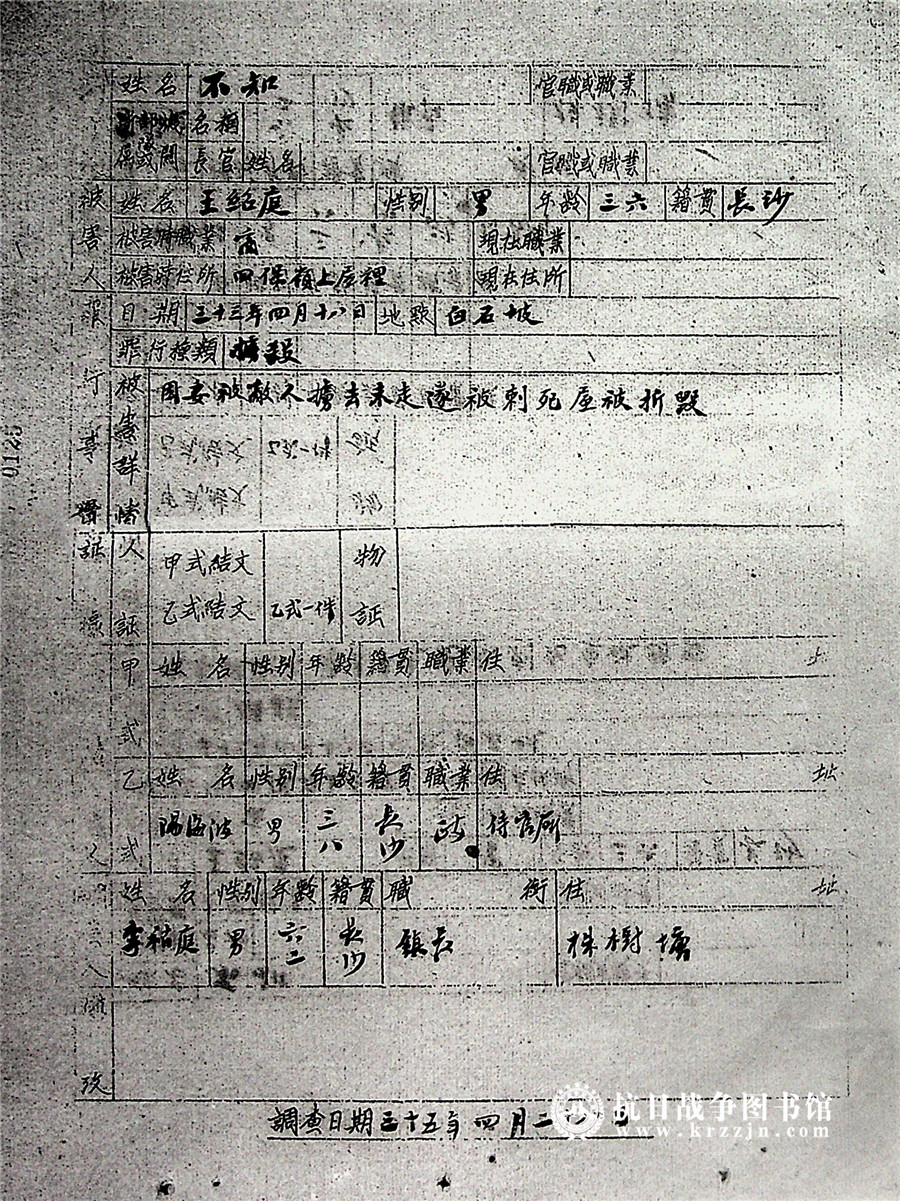 姓名 不知 官職或職業
名稱
長官 姓名 官職或職業
被害人 姓名 王紹庭 性别 男 年齡 三六 籍貫 長沙
被害時職業 商 現在職業
被害時住所 四保嶺上屋裡 現在住所
罪行事實 日期 三十三年四月十八日 地點 白石坡
罪行種類
被害詳情 因妻被敵人擄去未走遂被刺死屋被折毀
証 人証 甲式結文 物証
乙式結文 乙式一件
甲式 姓名 性别 年齡 籍貫 職業 住
乙式 姓名 性别 年齡 籍貫 職業 住址
陽海波 男 三八 長沙 政
姓名 性别 年齡 籍貫 職銜 住址
李 庭 男 六二 長沙 鎮長 株樹塘
調查日期 三十五年四月二 日
0125
抗日战争图书馆
www.krzzjn.com